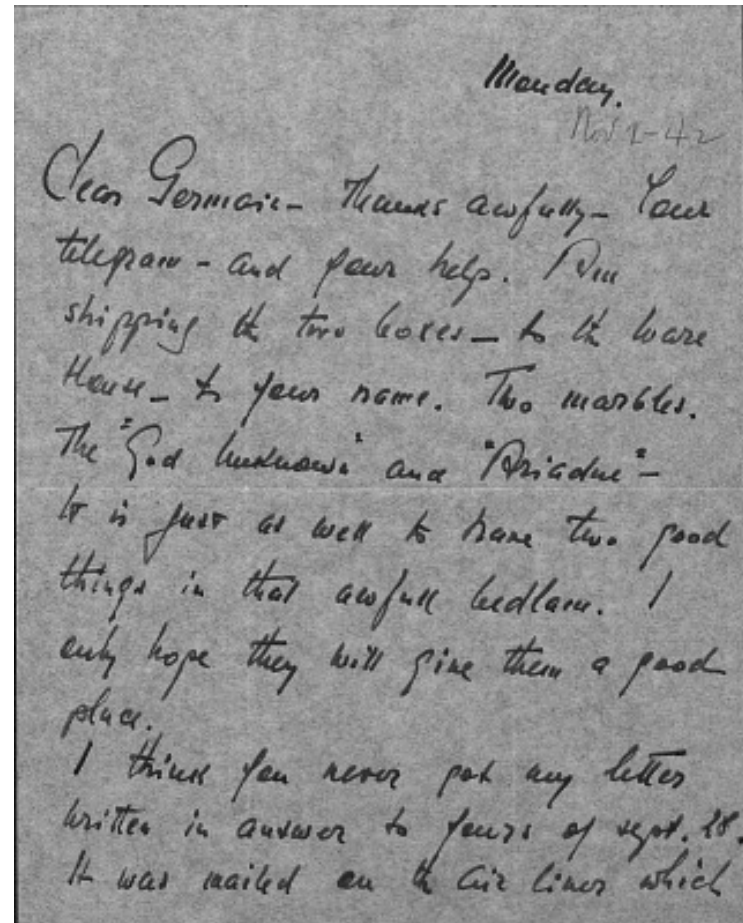 Monday.
Nov 2-42
Dear Germain - Thanks awfully - Your
telegram - and your help. Am
shipping th two boxes - to th Ware
House - to your name. Two marbles.
The "God Unknown" and "Ariadne" -
It is just as well to have two good
things in that awfull bedlam. I
only hope they will give them a good
place.
I think you never got my letter
written in answer to yours of sept. 28.
It was mailed on th air liner which